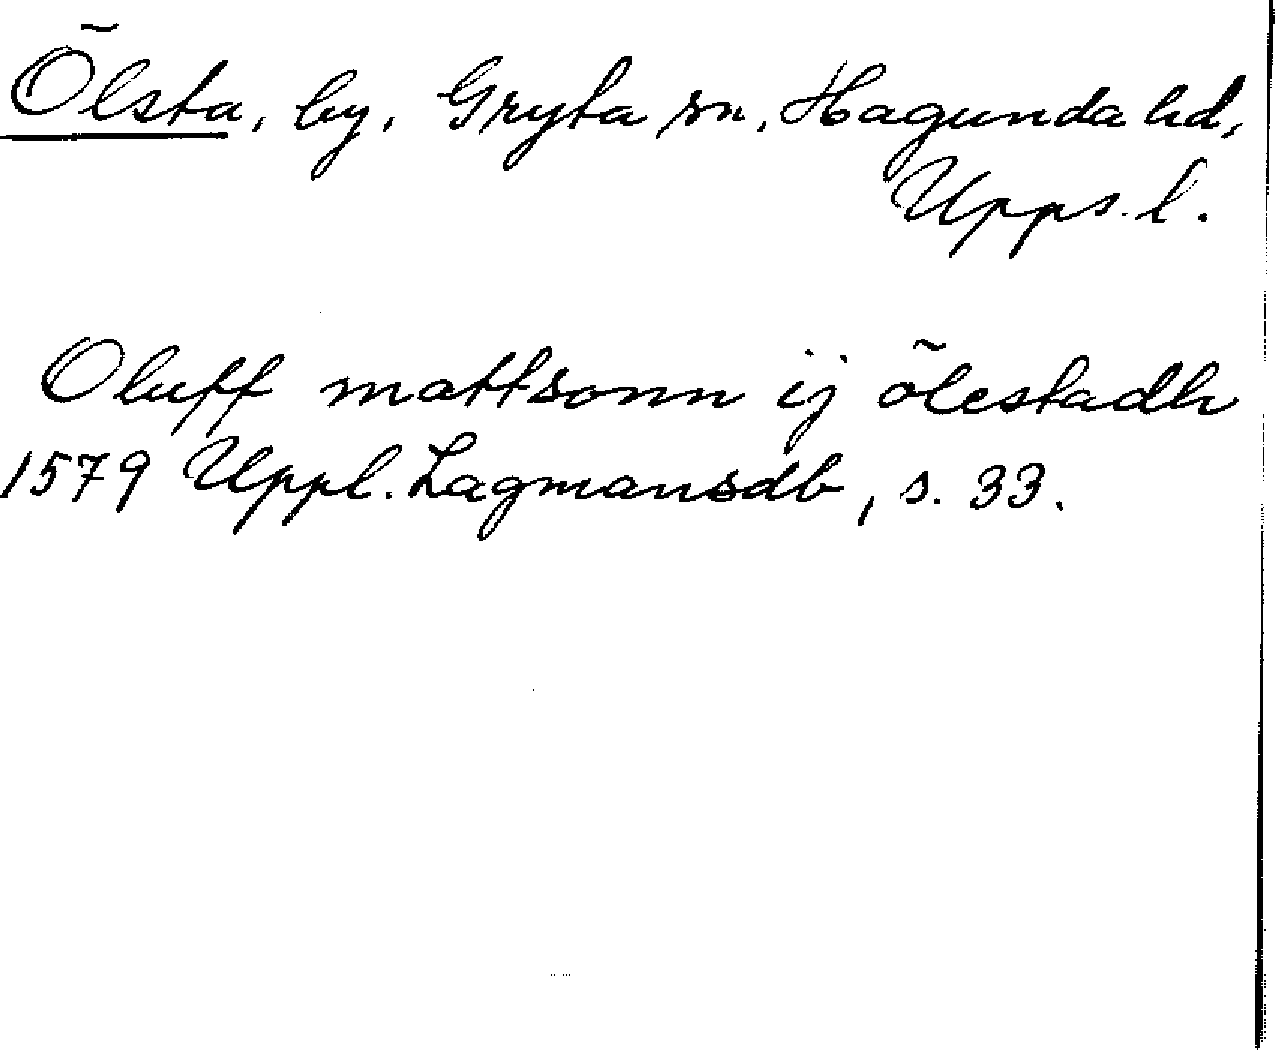 Õlsta, by, Gryta sn, Hagunda hd,
Upps. l.
Oluff mattsonn ij õlestadh
1579 Uppl. Lagmansdb, s. 33.